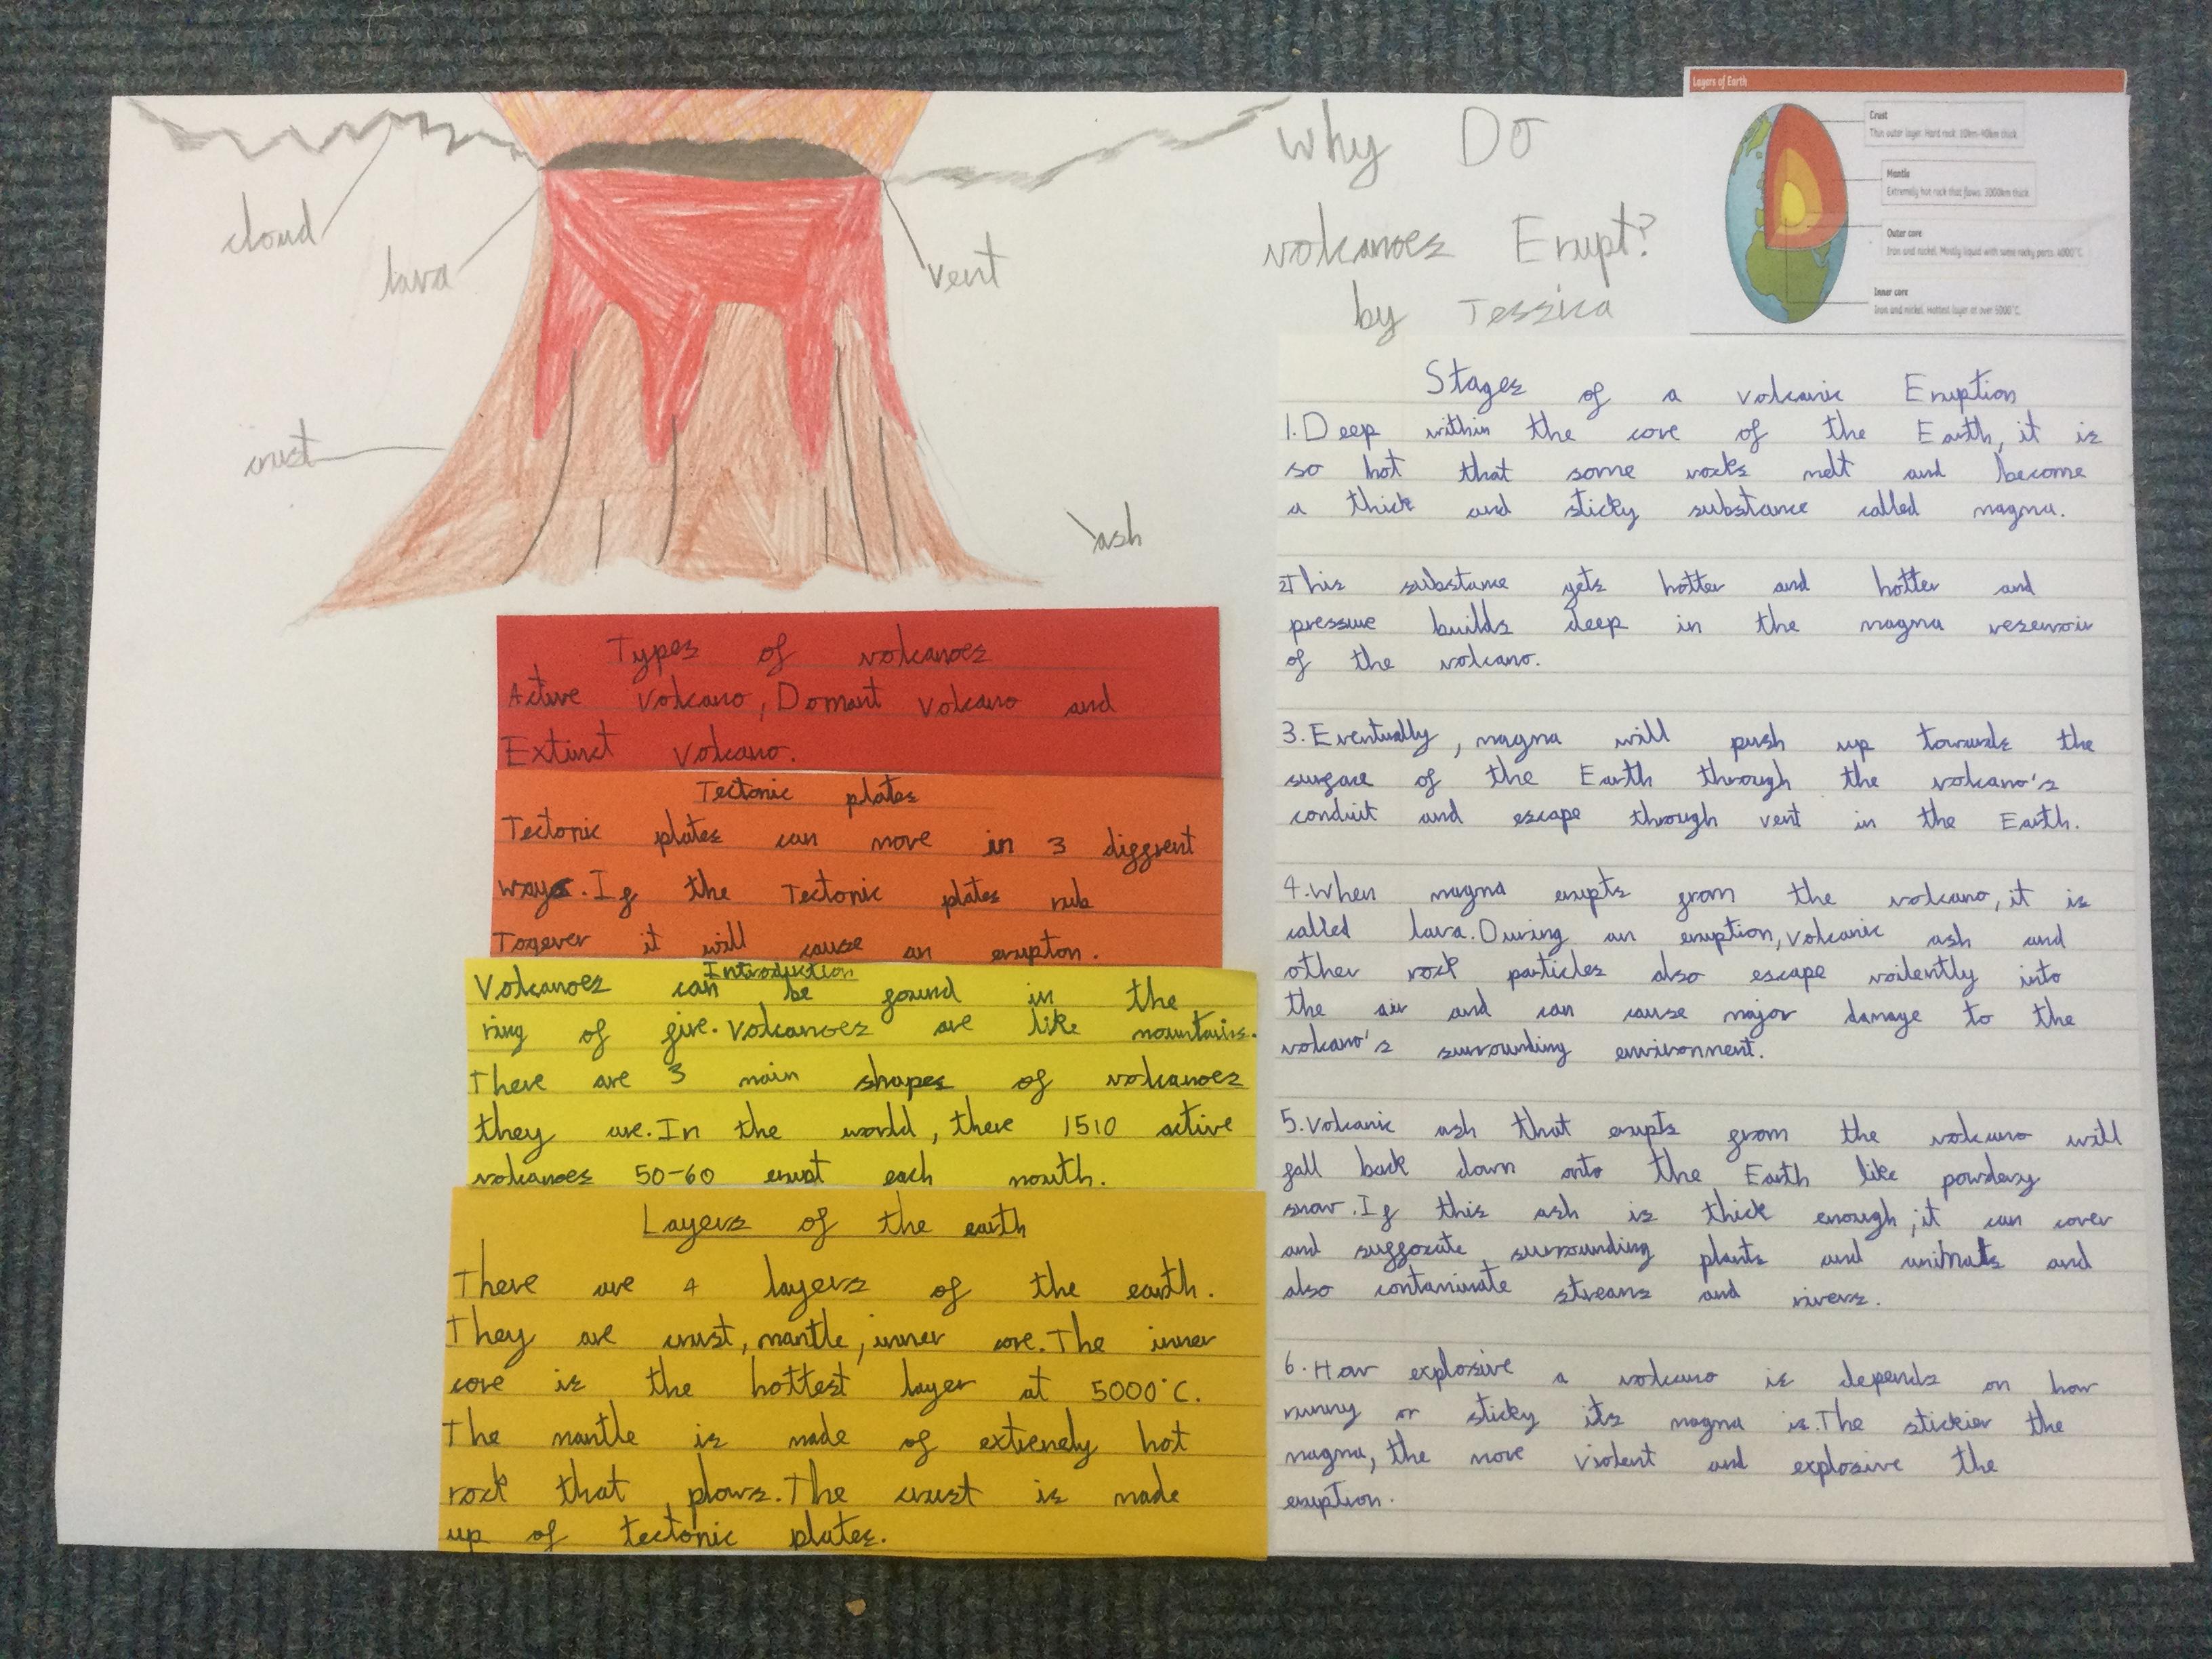 cloud
lava
vent
crust
ash
Why Do
volcanoes Erupt?
by Jessica
Layers of Earth
Crust
Thin outer layer. Hard rock. 10km-40km thick
Mantle
Extremely hot rock that flows. 3000km thick.
Outer core
Iron and nickel. Mostly liquid with some rocky parts. 4000°C.
Inner core
Iron and nickel. Hottest layer at over 5000°C.
Types of volcanoes
Active Volcano, Domant Volcano and
Extinct Volcano.
Tectonic plates
Tectonic plates can move in 3 diffrent
ways. If the Tectonic plates rub
Togever it will cause an erupton.
Introduction
Volcanoes can be found in the
ring of fire. Volcanoes are like mountains.
There are 3 main shapes of volcanoes
they are. In the world, there 1510 active
volcanoes 50-60 erust each month.
Layers of the earth
There are 4 layers of the earth.
They are crust, mantle, inner core. The inner
core is the hottest layer at 5000°C.
The mantle is made of extremely hot
rock that plows. The crust is made
up of tectonic plates.
Stages of a volcanic Eruption
1. Deep within the core of the Earth, it is
so hot that some rocks melt and become
a thick and sticky substance called magma.
2 This substance gets hotter and hotter and
pressure builds deep in the magma reservoir
of the volcano.
3. Eventually, magma will push up towards the
surface of the Earth through the volcano's
conduit and escape through vent in the Earth.
4. When magma erupts from the volcano, it is
called lava. During an eruption, volcanic ash and
other rock particles also escape voilently into
the air and can cause major damage to the
volcano's surrounding environment.
5. Volcanic ash that erupts from the volcano will
fall back down onto the Earth like powdery
snow. If this ash is thick enough, it can cover
and suffocate surrounding plants and animals and
also contaminate streams and rivers.
6. How explosive a volcano is depends on how
runny or sticky its magma is. The stickier the
magma, the more violent and explosive the
eruption.